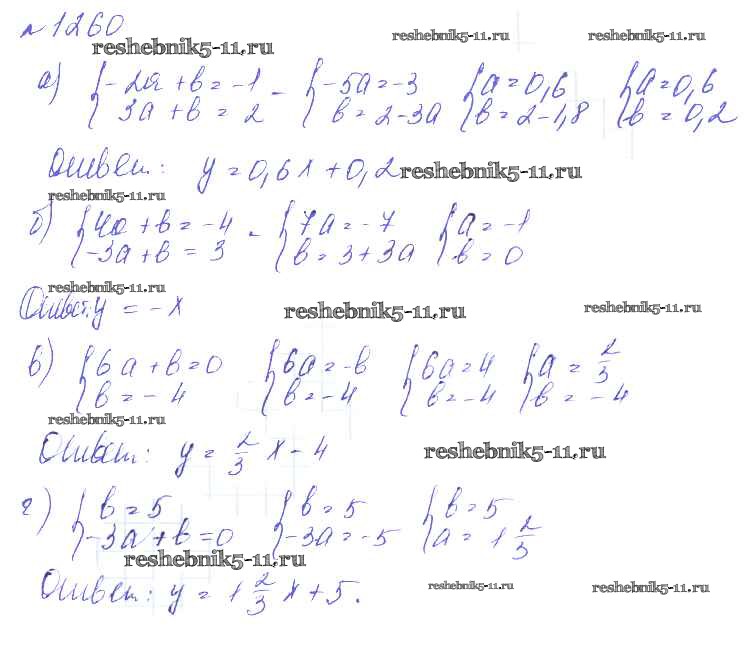 № 1260
reshebnik5-11.ru reshebnik5-11.ru reshebnik5-11.ru
а) { -2a + b = -1 - { -5a = -3 { a = 0,6 { a = 0,6
3a + b = 2 b = 2 - 3a b = 2 - 1,8 b = 0,2
Ответ: y = 0,6x + 0,2 reshebnik5-11.ru
reshebnik5-11.ru
б) { 4a + b = -4 - { 7a = -7 { a = -1
-3a + b = 3 b = 3 + 3a b = 0
reshebnik5-11.ru
Ответ: y = -x reshebnik5-11.ru reshebnik5-11.ru
в) { 6a + b = 0 { 6a = -b { 6a = 4 { a = 2/3
b = -4 b = -4 b = -4 b = -4
reshebnik5-11.ru
Ответ: y = 2/3 x - 4 reshebnik5-11.ru
г) { b = 5 { b = 5 { b = 5
-3a + b = 0 -3a = -5 a = 1 2/3
reshebnik5-11.ru
Ответ: y = 1 2/3 x + 5. reshebnik5-11.ru reshebnik5-11.ru